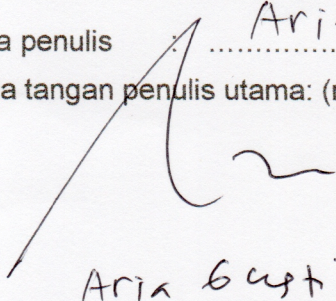 a penulis : ........ Ari
a tangan penulis utama: (
Aria Gusti